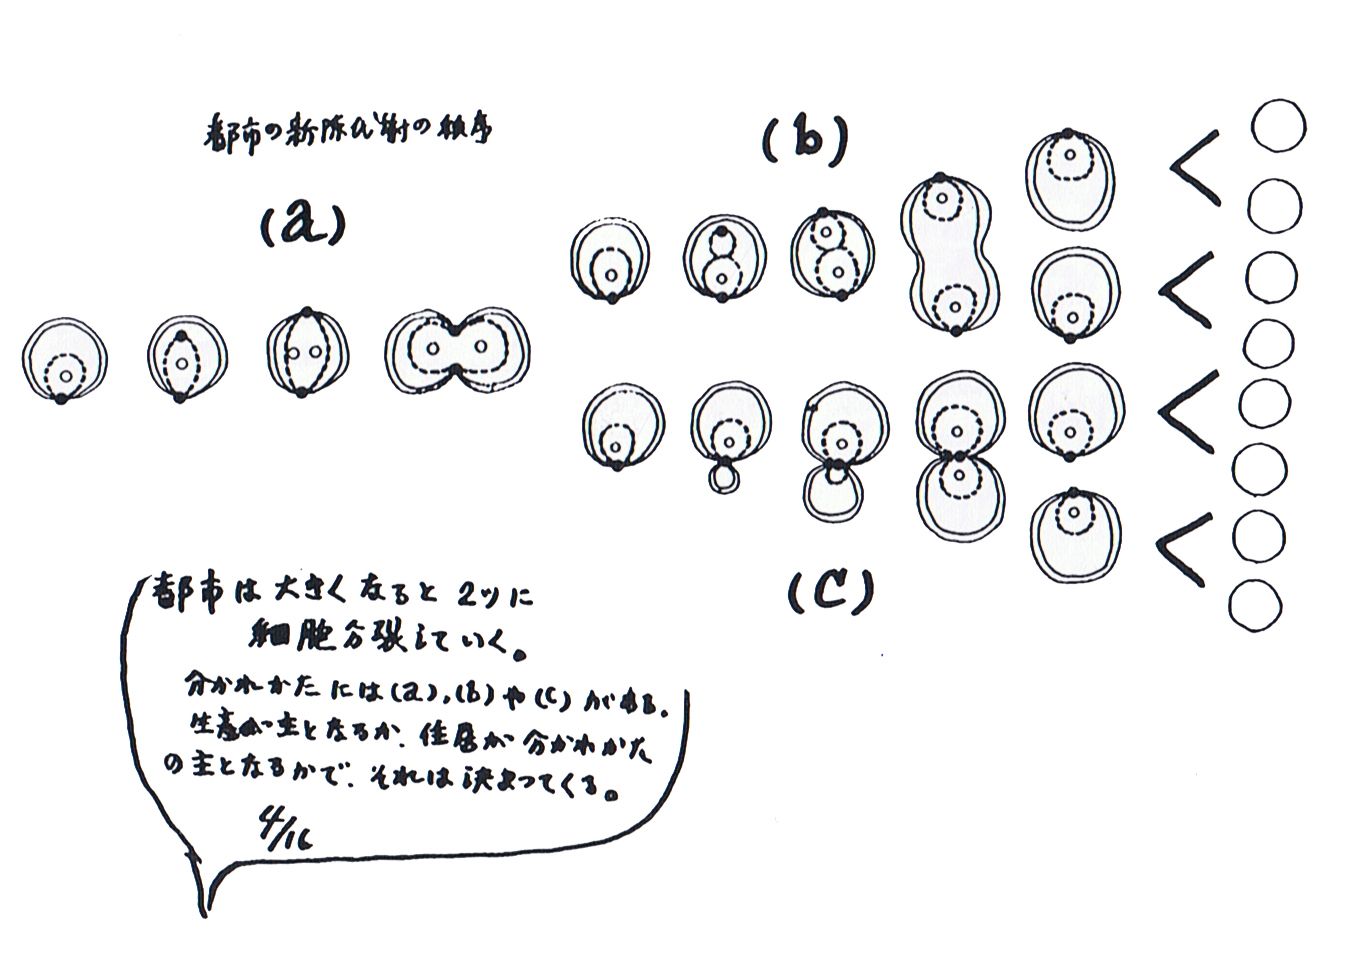 都市の新陳代謝の秩序
(a)
(b)
(c)
都市は大きくなると2ツに
細胞分裂していく。
分かれかたには(a),(b)や(c)がある。
生産が主となるか、住居が分かれかた
の主となるかで、それは決まってくる。
4/16